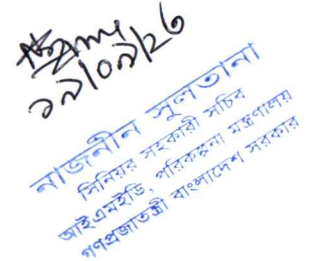 ১৯/০৯/২৩
নাজনীন সুলতানা
সিনিয়র সহকারী সচিব
আইএমইডি, পরিকল্পনা মন্ত্রণালয়
গণপ্রজাতন্ত্রী বাংলাদেশ সরকার